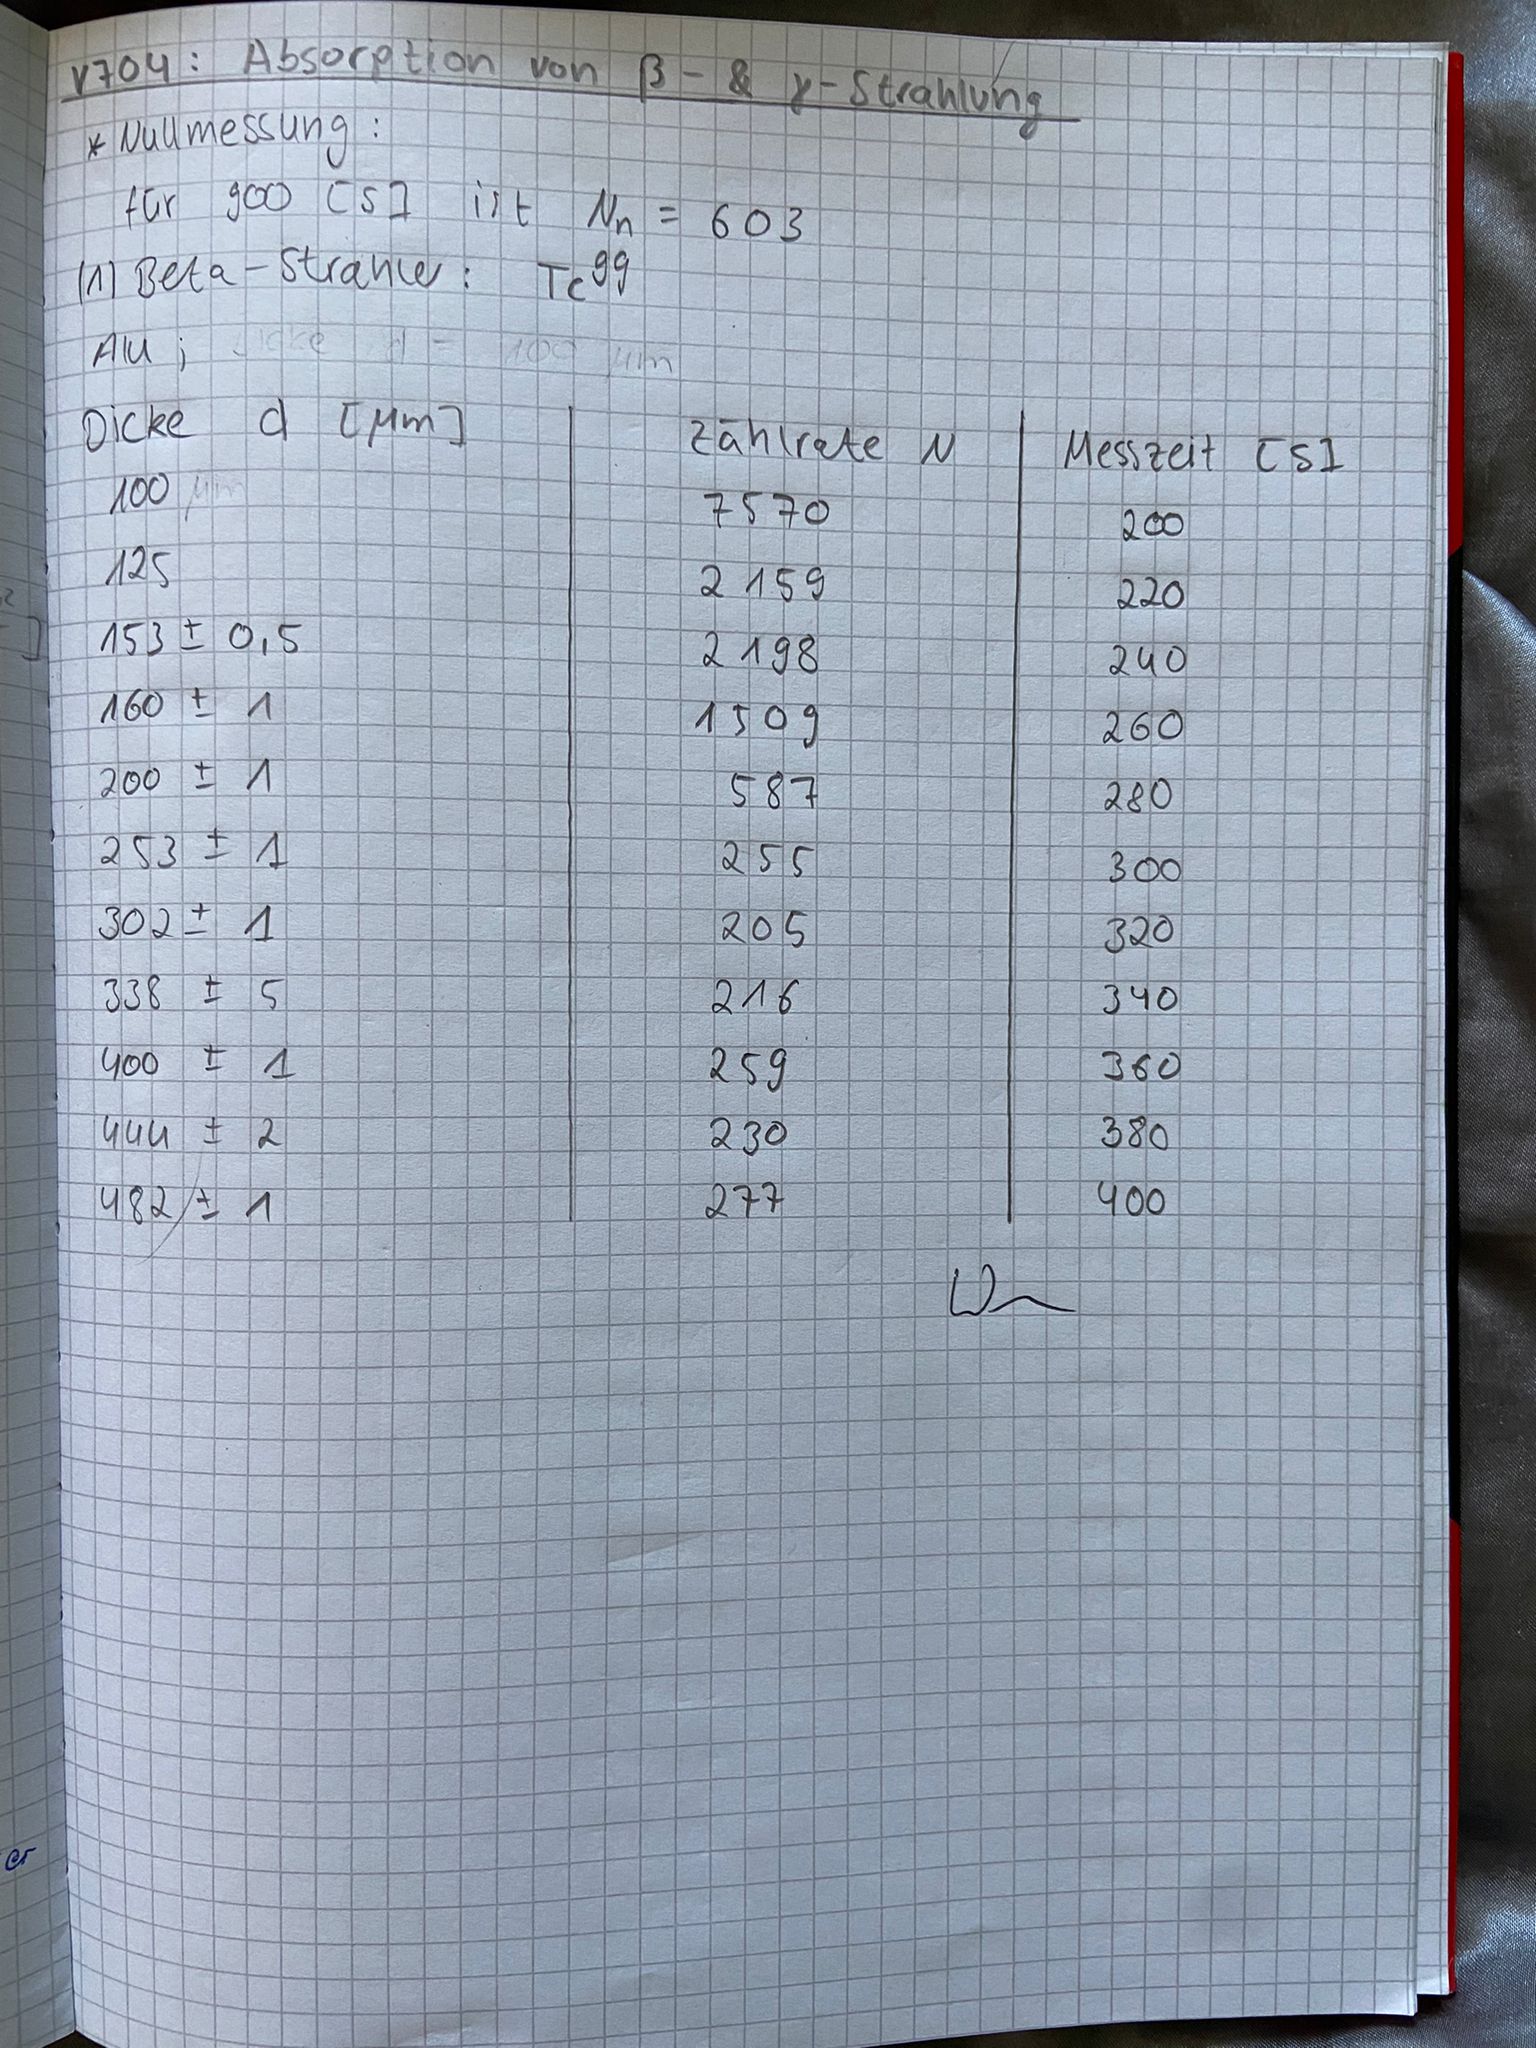 V704: Absorption von β- & γ-Strahlung
* Nullmessung:
für 900 [s] ist Nn = 603
(1) Beta-Strahler: Tc99
Alu; Dicke d = 100 μm
Dicke d [μm] Zählrate N Messzeit [s]
100 μm 7570 200
125 2159 220
153 ± 0,5 2198 240
160 ± 1 1509 260
200 ± 1 587 280
253 ± 1 255 300
302 ± 1 205 320
338 ± 5 216 340
400 ± 1 259 360
444 ± 2 230 380
482 ± 1 277 400